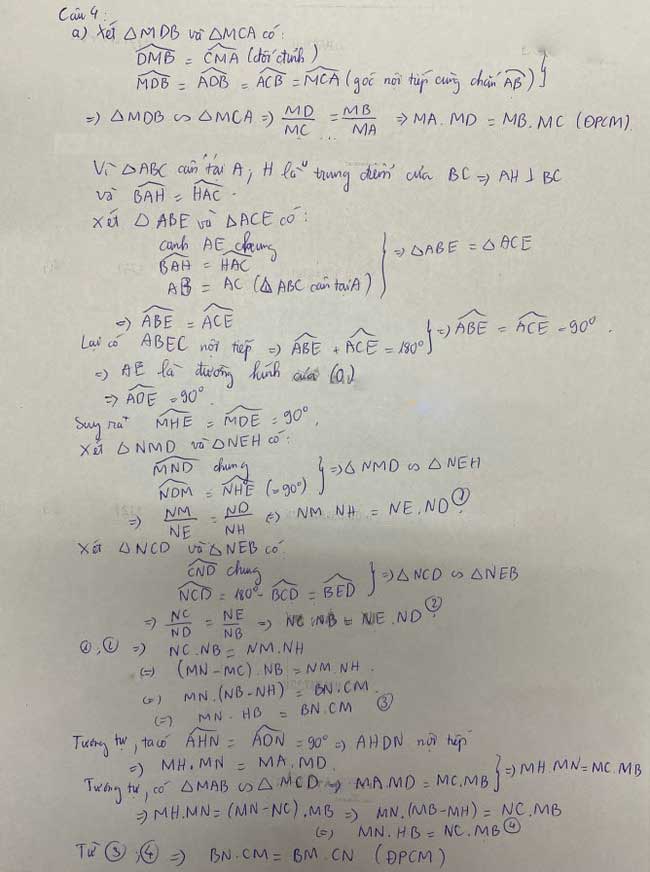 Câu 4:
a) Xét △MDB và △MCA có:
∠DMB = ∠CMA (đối đỉnh)
∠MDB = ∠ADB = ∠ACB = ∠MCA (góc nội tiếp cùng chắn AB)
=> △MDB ∽ △MCA => MD/MC = MB/MA => MA.MD = MB.MC (ĐPCM)
Vì △ABC cân tại A, H là trung điểm của BC => AH ⊥ BC
và ∠BAH = ∠HAC.
Xét △ABE và △ACE có:
cạnh AE chung
∠BAH = ∠HAC
AB = AC (△ABC cân tại A)
=> △ABE = △ACE
=> ∠ABE = ∠ACE
Lại có ABEC nội tiếp => ∠ABE + ∠ACE = 180° => ∠ABE = ∠ACE = 90°.
=> AE là đường kính của (O)
=> ∠ADE = 90°.
Suy ra ∠MHE = ∠MDE = 90°.
Xét △NMD và △NEH có:
∠MND chung
∠NDM = ∠NHE (=90°)
=> △NMD ∽ △NEH
=> NM/NE = ND/NH <=> NM.NH = NE.ND ①
Xét △NCD và △NEB có:
∠CND chung
∠NCD = 180° - ∠BCD = ∠BED
=> △NCD ∽ △NEB
=> NC/ND = NE/NB => NC.NB = NE.ND ②
①, ② => NC.NB = NM.NH
<=> (MN-MC).NB = NM.NH.
<=> MN.(NB-NH) = BN.CM.
<=> MN.HB = BN.CM ③
Tương tự, ta có ∠AHN = ∠ADN = 90° => AHDN nội tiếp
=> MH.MN = MA.MD.
Tương tự, có △MAB ∽ △MCD => MA.MD = MC.MB
=> MH.MN = MC.MB
=> MH.MN = (MN-NC).MB => MN.(MB-MH) = NC.MB
<=> MN.HB = NC.MB ④
Từ ③, ④ => BN.CM = BM.CN (ĐPCM)